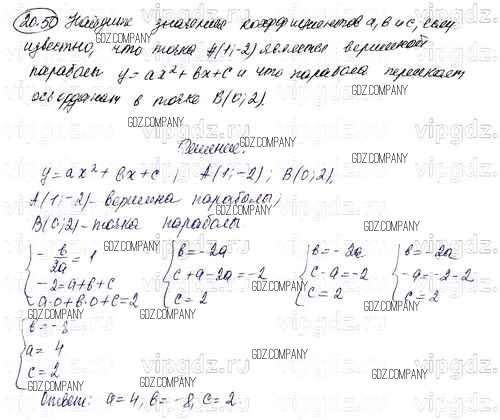 20.50 Найдите значения коэффициентов a, b и c, если
известно, что точка A(1;-2) является вершиной
параболы y = ax² + bx + c и что парабола пересекает
ось ординат в точке B(0;2)
Решение:
y = ax² + bx + c ; A(1;-2) ; B(0;2),
A(1;-2) - вершина параболы;
B(0;2) - точка параболы
{ -b/2a = 1
-2 = a + b + c
a·0 + b·0 + c = 2
{ b = -2a
c + a - 2a = -2
c = 2
{ b = -2a
c - a = -2
c = 2
{ b = -2a
-a = -2 - 2
c = 2
{ b = -8
a = 4
c = 2
Ответ: a = 4, b = -8, c = 2.
GDZ.COMPANY
vipgdz.ru